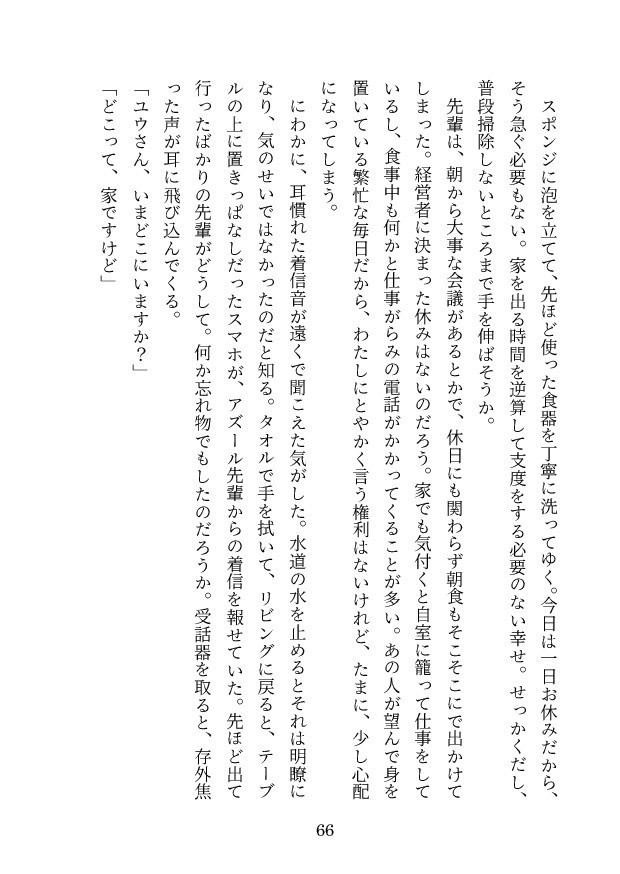 スポンジに泡を立てて、先ほど使った食器を丁寧に洗ってゆく。今日は一日お休みだから、
そう急ぐ必要もない。家を出る時間を逆算して支度をする必要のない幸せ。せっかくだし、
普段掃除しないところまで手を伸ばそうか。
先輩は、朝から大事な会議があるとかで、休日にも関わらず朝食もそこそこにで出かけて
しまった。経営者に決まった休みはないのだろう。家でも気付くと自室に籠って仕事をして
いるし、食事中も何かと仕事がらみの電話がかかってくることが多い。あの人が望んで身を
置いている繁忙な毎日だから、わたしにとやかく言う権利はないけれど、たまに、少し心配
になってしまう。
にわかに、耳慣れた着信音が遠くで聞こえた気がした。水道の水を止めるとそれは明瞭に
なり、気のせいではなかったのだと知る。タオルで手を拭いて、リビングに戻ると、テーブ
ルの上に置きっぱなしだったスマホが、アズール先輩からの着信を報せていた。先ほど出て
行ったばかりの先輩がどうして。何か忘れ物でもしたのだろうか。受話器を取ると、存外焦
った声が耳に飛び込んでくる。
「ユウさん、いまどこにいますか？」
「どこって、家ですけど」
66